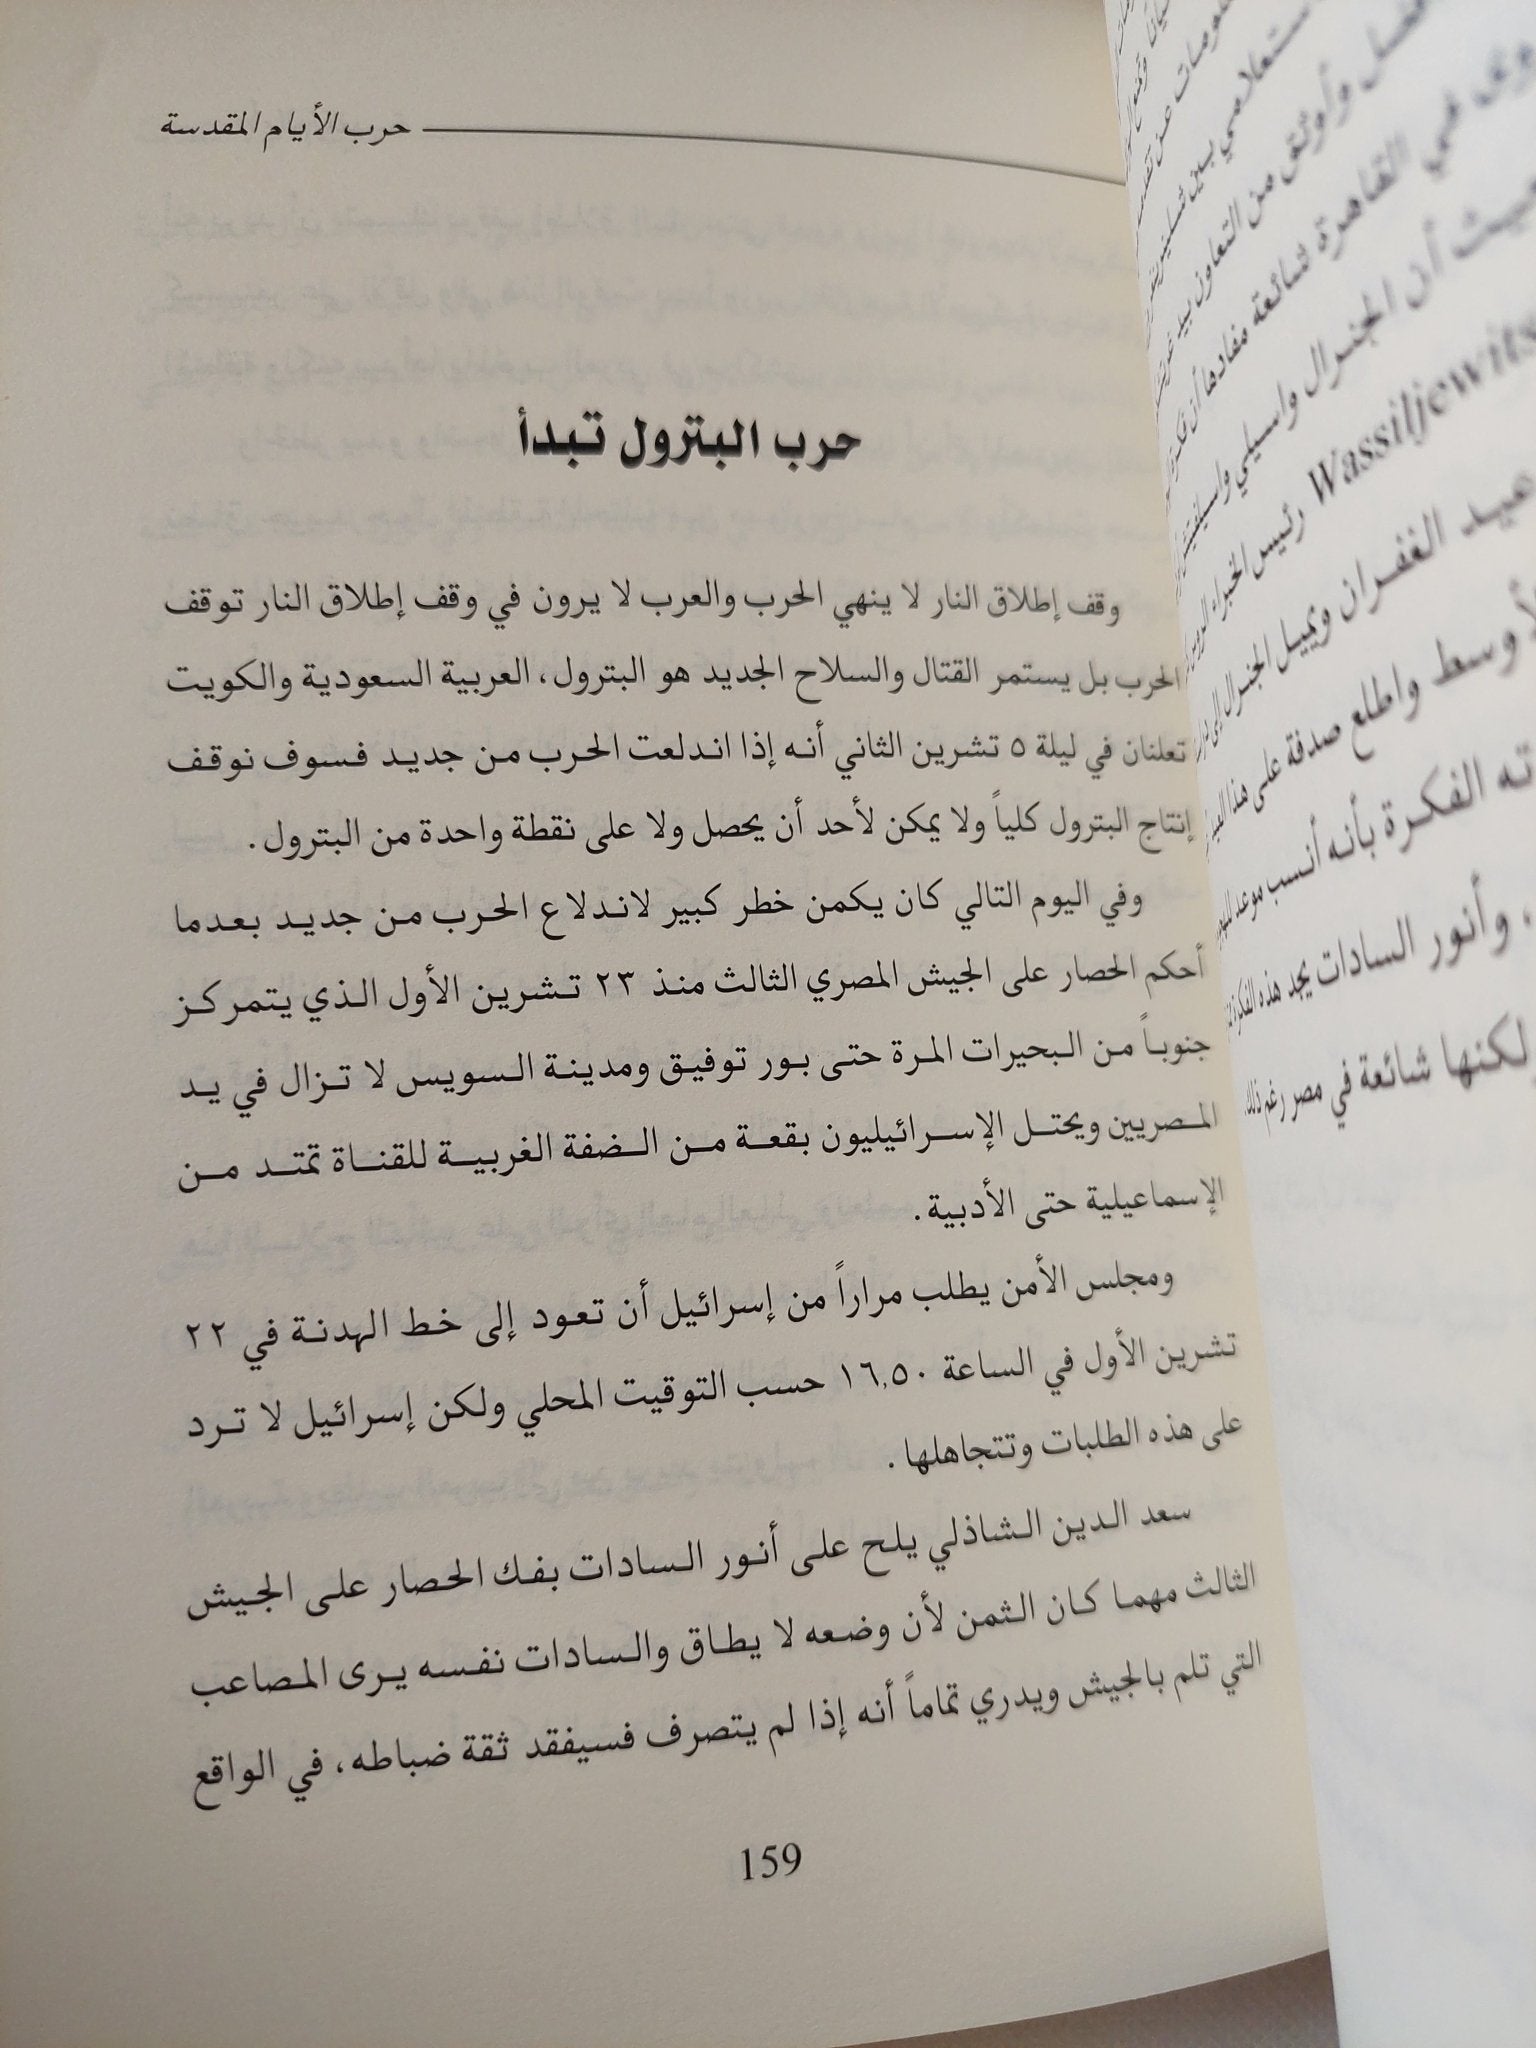 حرب الأيام المقدسة
حرب البترول تبدأ
وقف إطلاق النار لا ينهي الحرب والعرب لا يرون في وقف إطلاق النار توقف
الحرب بل يستمر القتال والسلاح الجديد هو البترول، العربية السعودية والكويت
تعلنان في ليلة ٥ تشرين الثاني أنه إذا اندلعت الحرب من جديد فسوف نوقف
إنتاج البترول كلياً ولا يمكن لأحد أن يحصل ولا على نقطة واحدة من البترول.
وفي اليوم التالي كان يكمن خطر كبير لاندلاع الحرب من جديد بعدما
أحكم الحصار على الجيش المصري الثالث منذ ٢٣ تشرين الأول الذي يتمركز
جنوباً من البحيرات المرة حتى بور توفيق ومدينة السويس لا تزال في يد
المصريين ويحتل الإسرائيليون بقعة من الضفة الغربية للقناة تمتد من
الإسماعيلية حتى الأدبية.
ومجلس الأمن يطلب مراراً من إسرائيل أن تعود إلى خط الهدنة في ٢٢
تشرين الأول في الساعة ١٦,٥٠ حسب التوقيت المحلي ولكن إسرائيل لا ترد
على هذه الطلبات وتتجاهلها.
سعد الدين الشاذلي يلح على أنور السادات بفك الحصار على الجيش
الثالث مهما كان الثمن لأن وضعه لا يطاق والسادات نفسه يرى المصاعب
التي تلم بالجيش ويدري تماماً أنه إذا لم يتصرف فسيفقد ثقة ضباطه، في الواقع
159
ومات عن
ستعلامي بين
فضل وأوثق من التعاون بيد
وى في القاهرة شائعة مفادها أن فكرة
حيث أن الجنرال واسيلي
Wassiljewits رئيس الخبراء
عيد الغفران ويميل الجنرال إلى
لأوسط واطلع صدفة على هذا
ته الفكرة بأنه أنسب موعد
، وأنور السادات يجد هذه الفكرة
لكنها شائعة في مصر رغم ذلك.